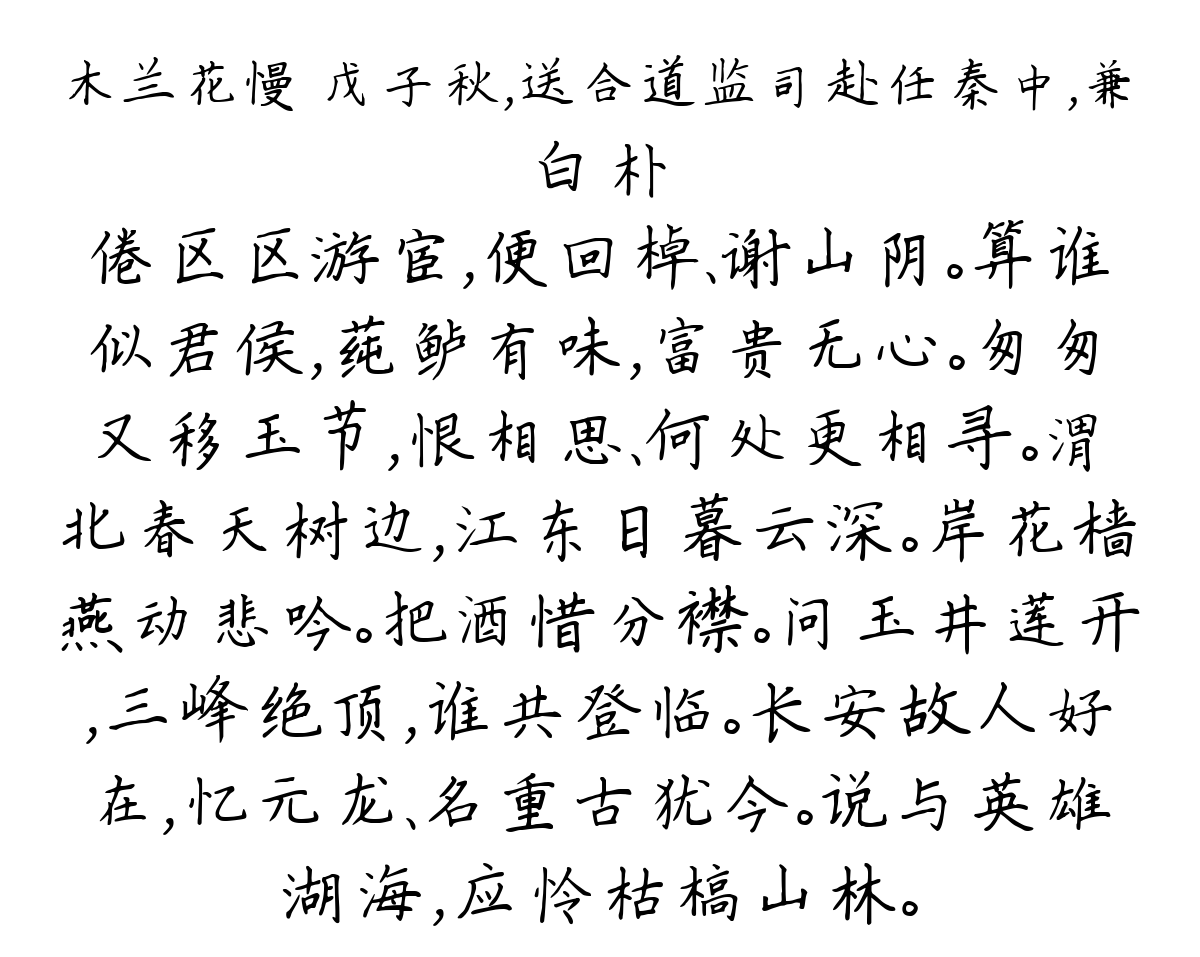 木兰花慢 戊子秋,送合道监司赴任秦中,兼
白朴
倦区区游宦,便回棹、谢山阴。算谁
似君侯,莼鲈有味,富贵无心。匆匆
又移玉节,恨相思、何处更相寻。渭
北春天树边,江东日暮云深。岸花樯
燕动悲吟。把酒惜分襟。问玉井莲开
,三峰绝顶,谁共登临。长安故人好
在,忆元龙、名重古犹今。说与英雄
湖海,应怜枯槁山林。